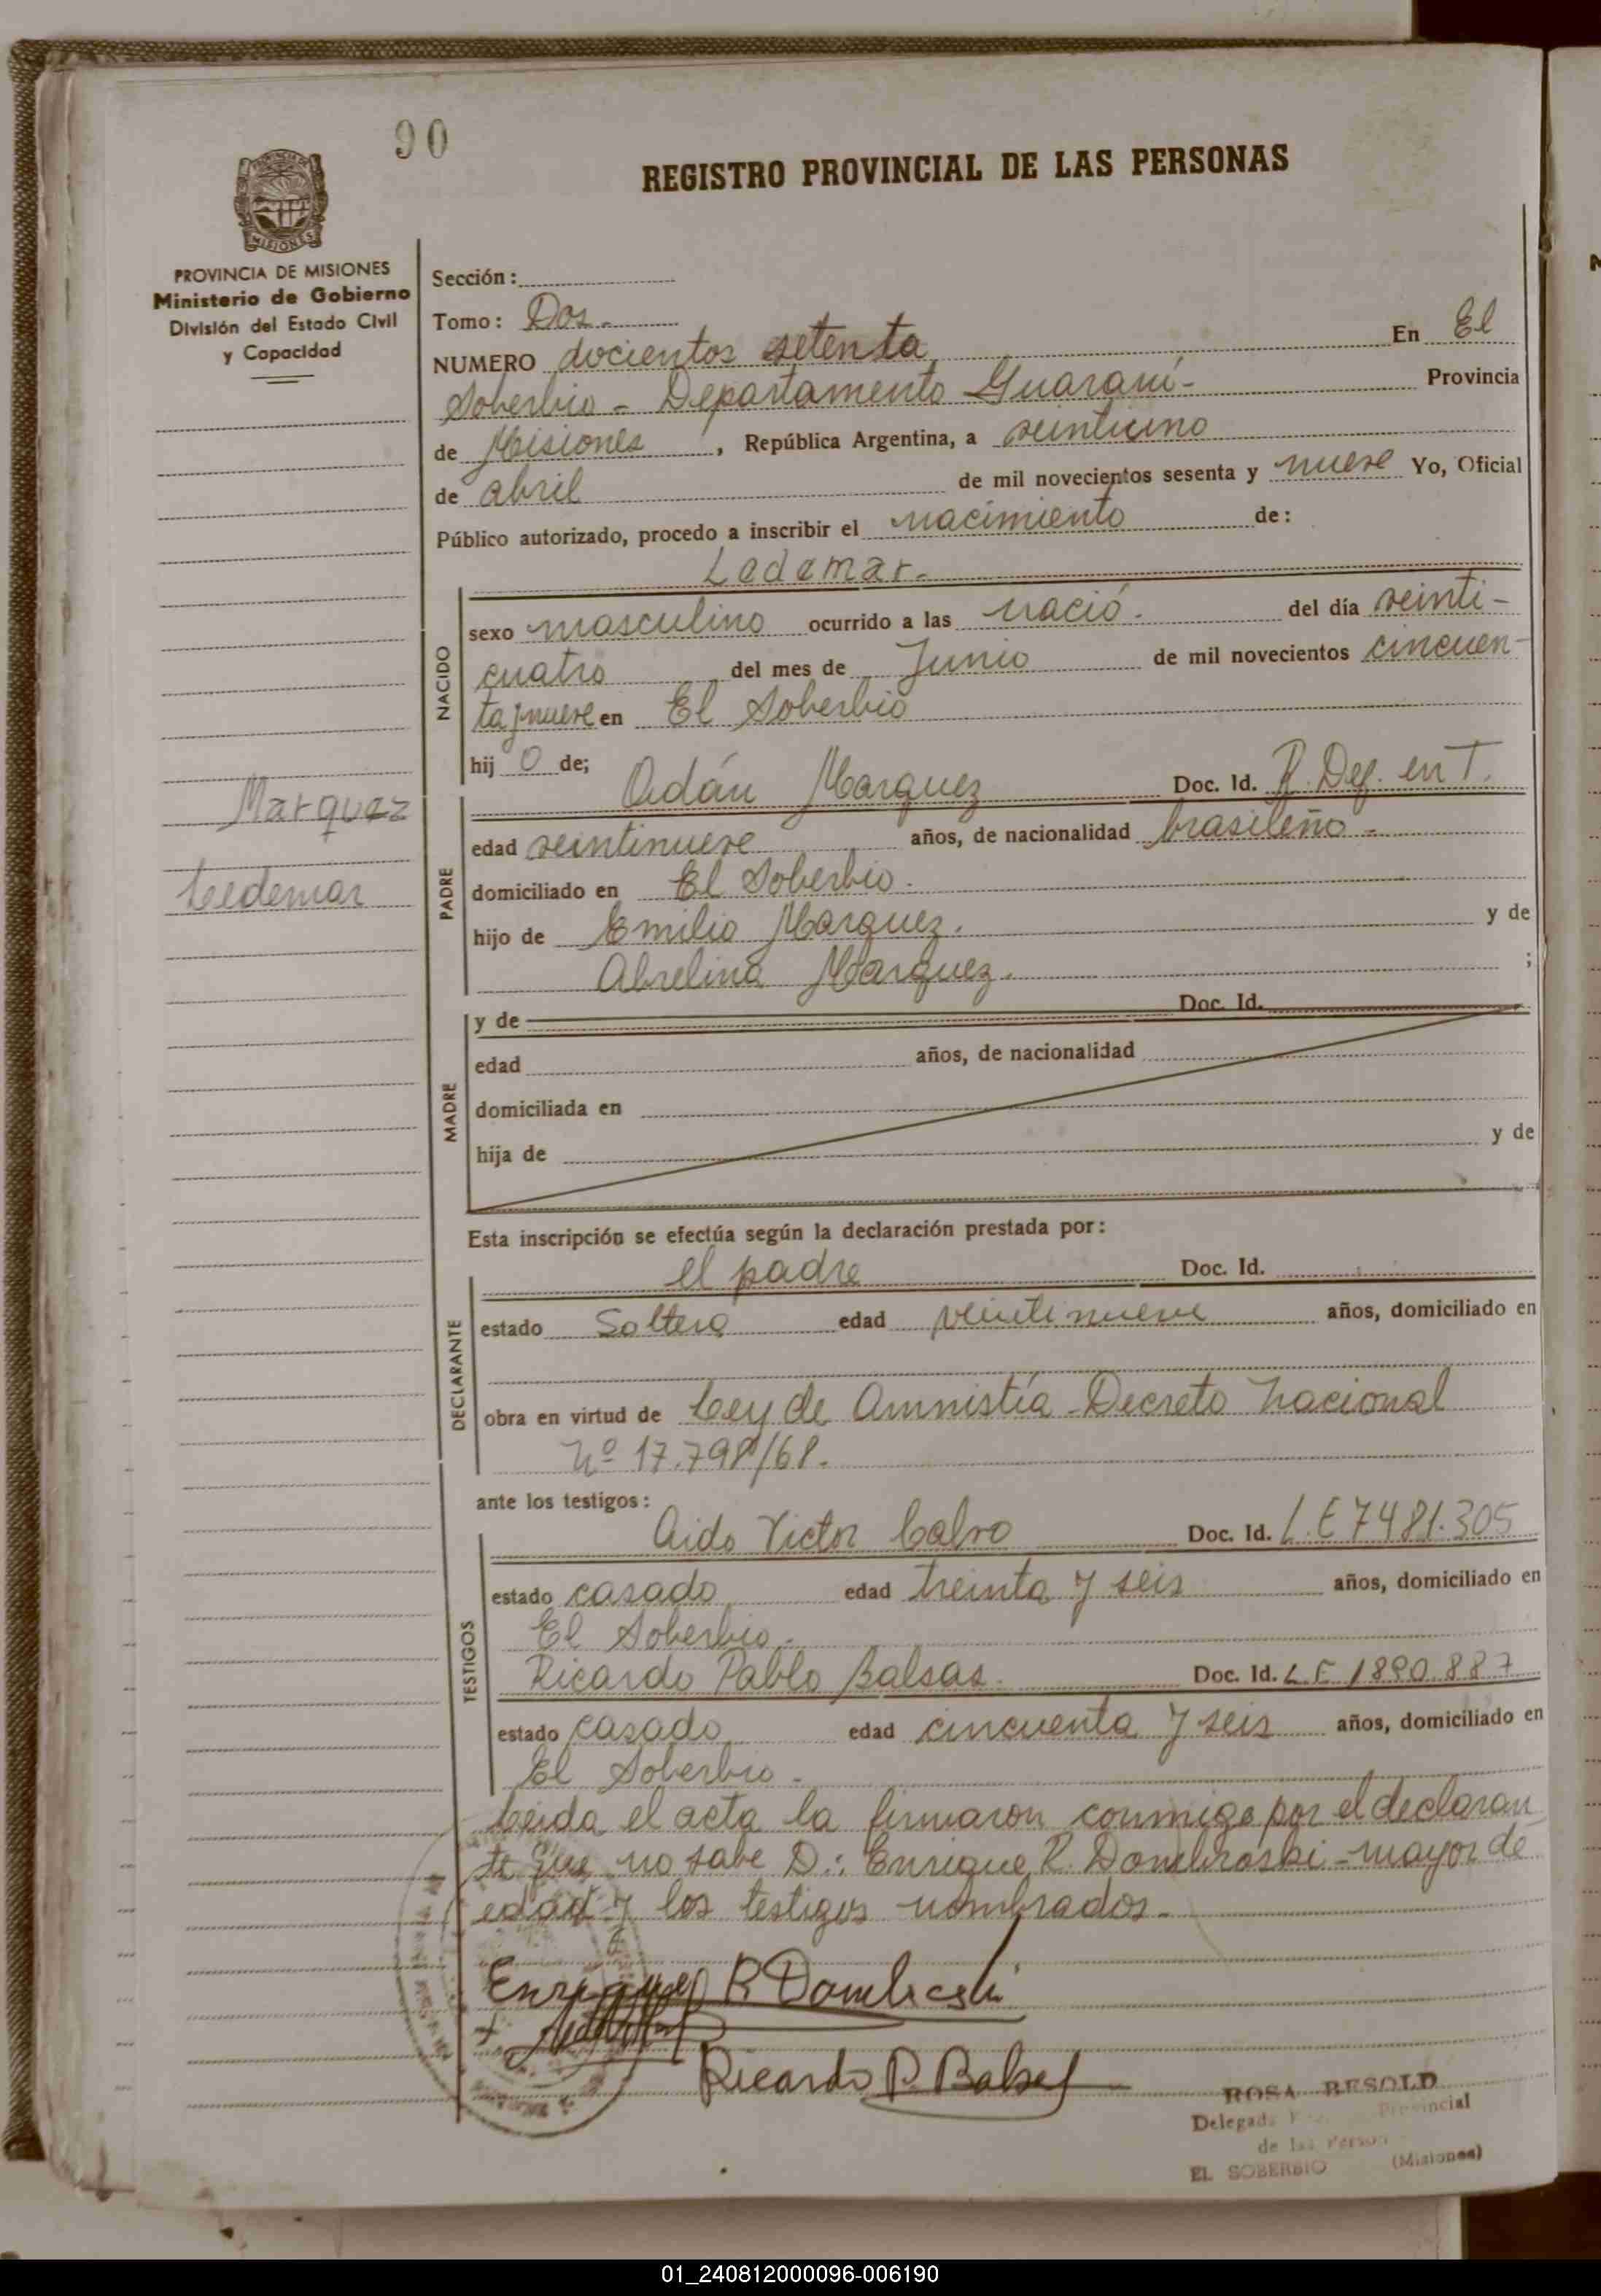 90
REGISTRO PROVINCIAL DE LAS PERSONAS
PROVINCIA DE MISIONES
Ministerio de Gobierno
División del Estado Civil
y Capacidad
Sección:
Tomo: Dos.-
NUMERO docientos setenta En El
Soberbio - Departamento Guaraní- Provincia
de Misiones, República Argentina, a
de abril de mil novecientos sesenta y nueve Yo, Oficial
Público autorizado, procedo a inscribir el nacimiento de:
Ledemar.-
NACIDO
sexo masculino ocurrido a las nació. del día veinti-
cuatro del mes de Junio de mil novecientos cincuen-
ta y nueve en El Soberbio
hij o de;
Marquez
Ledemar
PADRE
Adán Marquez Doc. Id. R. Def. en T.
edad veintinueve años, de nacionalidad brasileño.-
domiciliado en El Soberbio.
hijo de Emilio Marquez. y de
Abrelina Marquez. ;
MADRE
y de Doc. Id.
edad años, de nacionalidad
domiciliada en
hija de y de
Esta inscripción se efectúa según la declaración prestada por:
DECLARANTE
el padre Doc. Id.
estado Soltero edad veintinueve años, domiciliado en
obra en virtud de Ley de Amnistía-Decreto Nacional
Nº 17.798/68.
ante los testigos:
TESTIGOS
Aido Victor Calvo Doc. Id. L.E 7481.305
estado casado edad treinta y seis años, domiciliado en
El Soberbio.-
Ricardo Pablo Balsas. Doc. Id. L E 1890.887
estado casado edad cincuenta y seis años, domiciliado en
El Soberbio.-
Leida el acta la firmaron conmigo por el declaran
te que no sabe D.: Enrique R. Dombroski-mayor de
edad y los testigos nombrados.-
Enrique R Dombroski
Ricardo P. Balsas
ROSA BESOLD
Delegada Provincial
de las Person
EL SOBERBIO (Misiones)
01_240812000096-006190